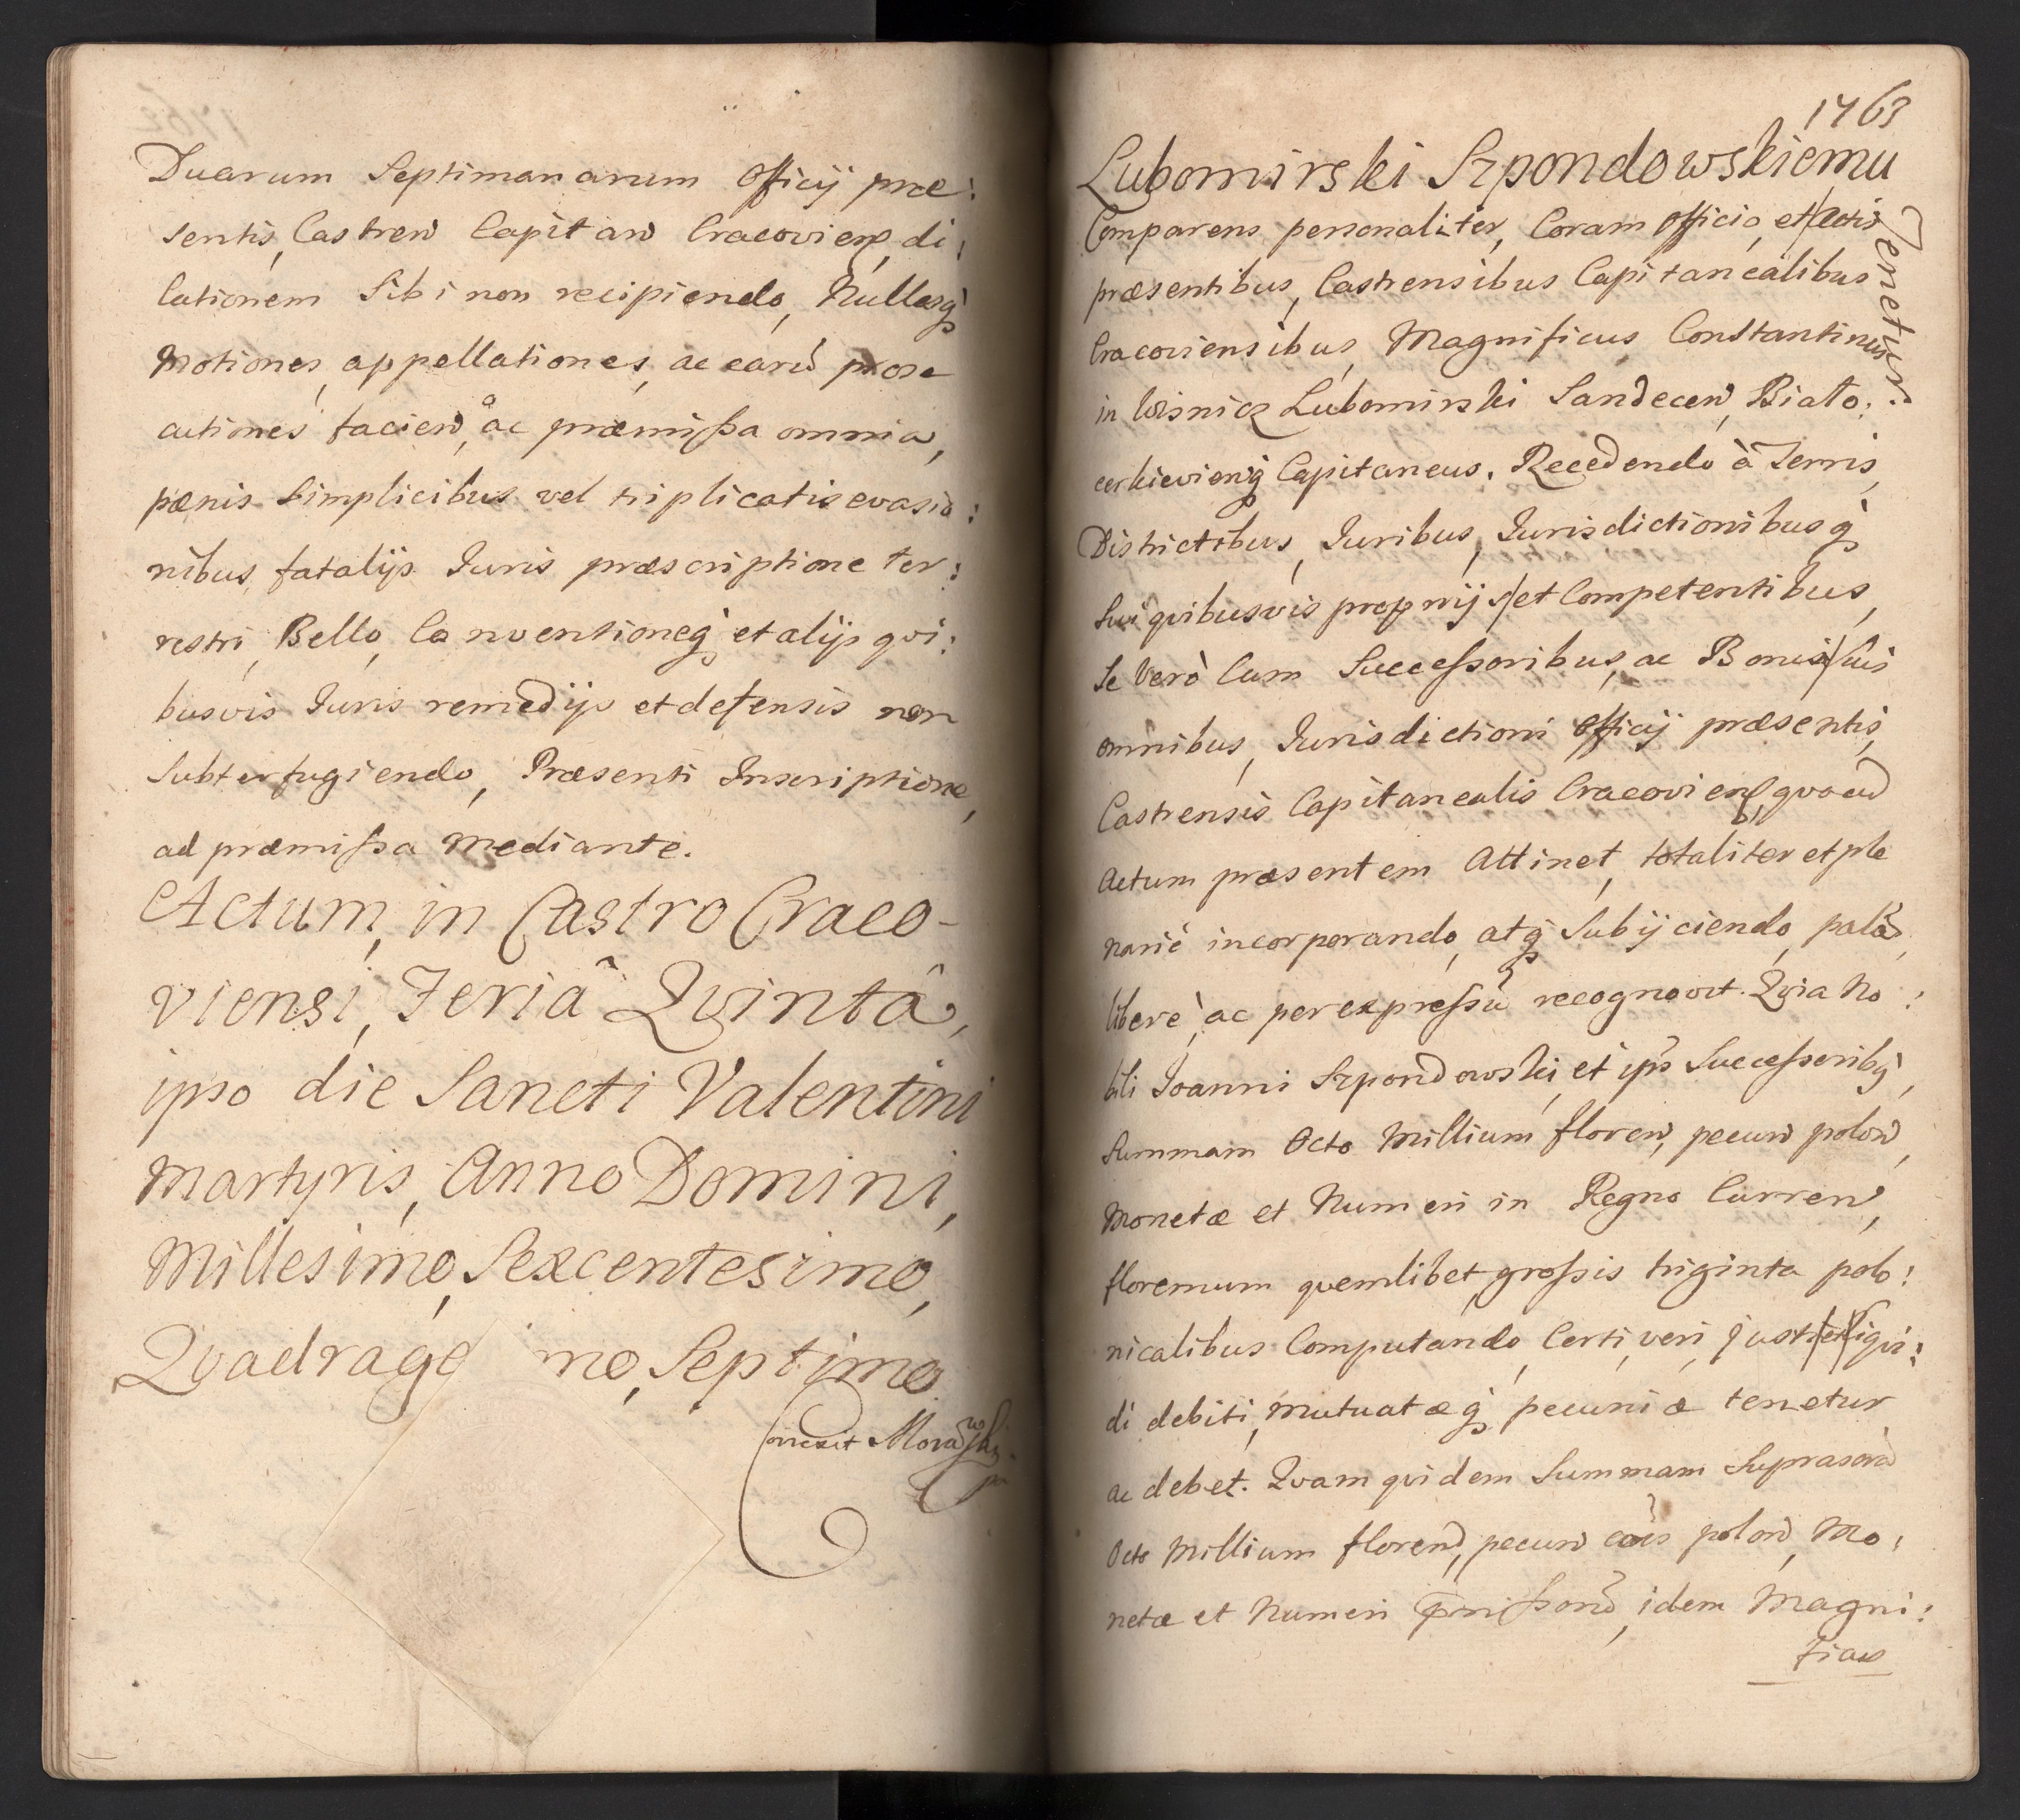 Duarum Septimanarum Officij præ:
sentis, Castren Capitan Cracovien, di:
lationem Sibi non recipiendo, Nullasq
Motiones, appellationes, ac earū prose
cutiones facien, ac præmissa omnia,
pænis Simplicibus vel triplicatis evasio:
nibus, fatalijs Iuris præscriptione ter:
restri, Bello, Conventioneq et alijs qvi:
busvis Iuris remedijs et defensis non
Subterfugiendo, Præsenti Inscriptione,
ad præmissa mediante.
Actum, in Castro Craco-
viensi, Feriâ Qvintâ,
ipso die Sancti Valentini
Martyris, Anno Domini,
Millesimo, Sexcentesimo,
Qvadrage mo, Septimo
Correxit
1763
Lubomirski Szpondowskiemu
Comparens personaliter, Coram Officio, et Actis
Tenetur.
præsentibus, Castrensibus Capitanealibus
Cracoviensibus, Magnificus Constantinus
in Wisnicz Lubomirski Sandecen, Biało:
cerkievienq Capitaneus. Recedendo à Terris,
Districtibus, Iuribus, Iurisdictionibusq
Sui qvibusvis proprijs et Competentibus,
Se Verò Cum Successoribus, ac Bonis Suis
omnibus, Iurisdictioni Officij præsentis,
Castrensis Capitanealis Cracovien, qvoad
Actum præsentem Attinet, totaliter et ple
nariè incorporando, atq Subijciendo, palā,
liberè, ac per expressū recognovit. Qvia No:
bili Ioanni Szpondowski, et ips Successoribq,
Summam Octo Millium floren, pecun polon,
Monetæ et Numeri in Regno Curren,
florenum qvemlibet, grossis triginta polo:
nicalibus Computando, Certi, veri, justi et liqvi:
di debiti, mutuatæq pecuniæ tenetur
ac debet. Qvam qvidem Summam
Octo Millium floren, pecun cōis polon, Mo:
netæ et Numeri idem Magni:
ficus